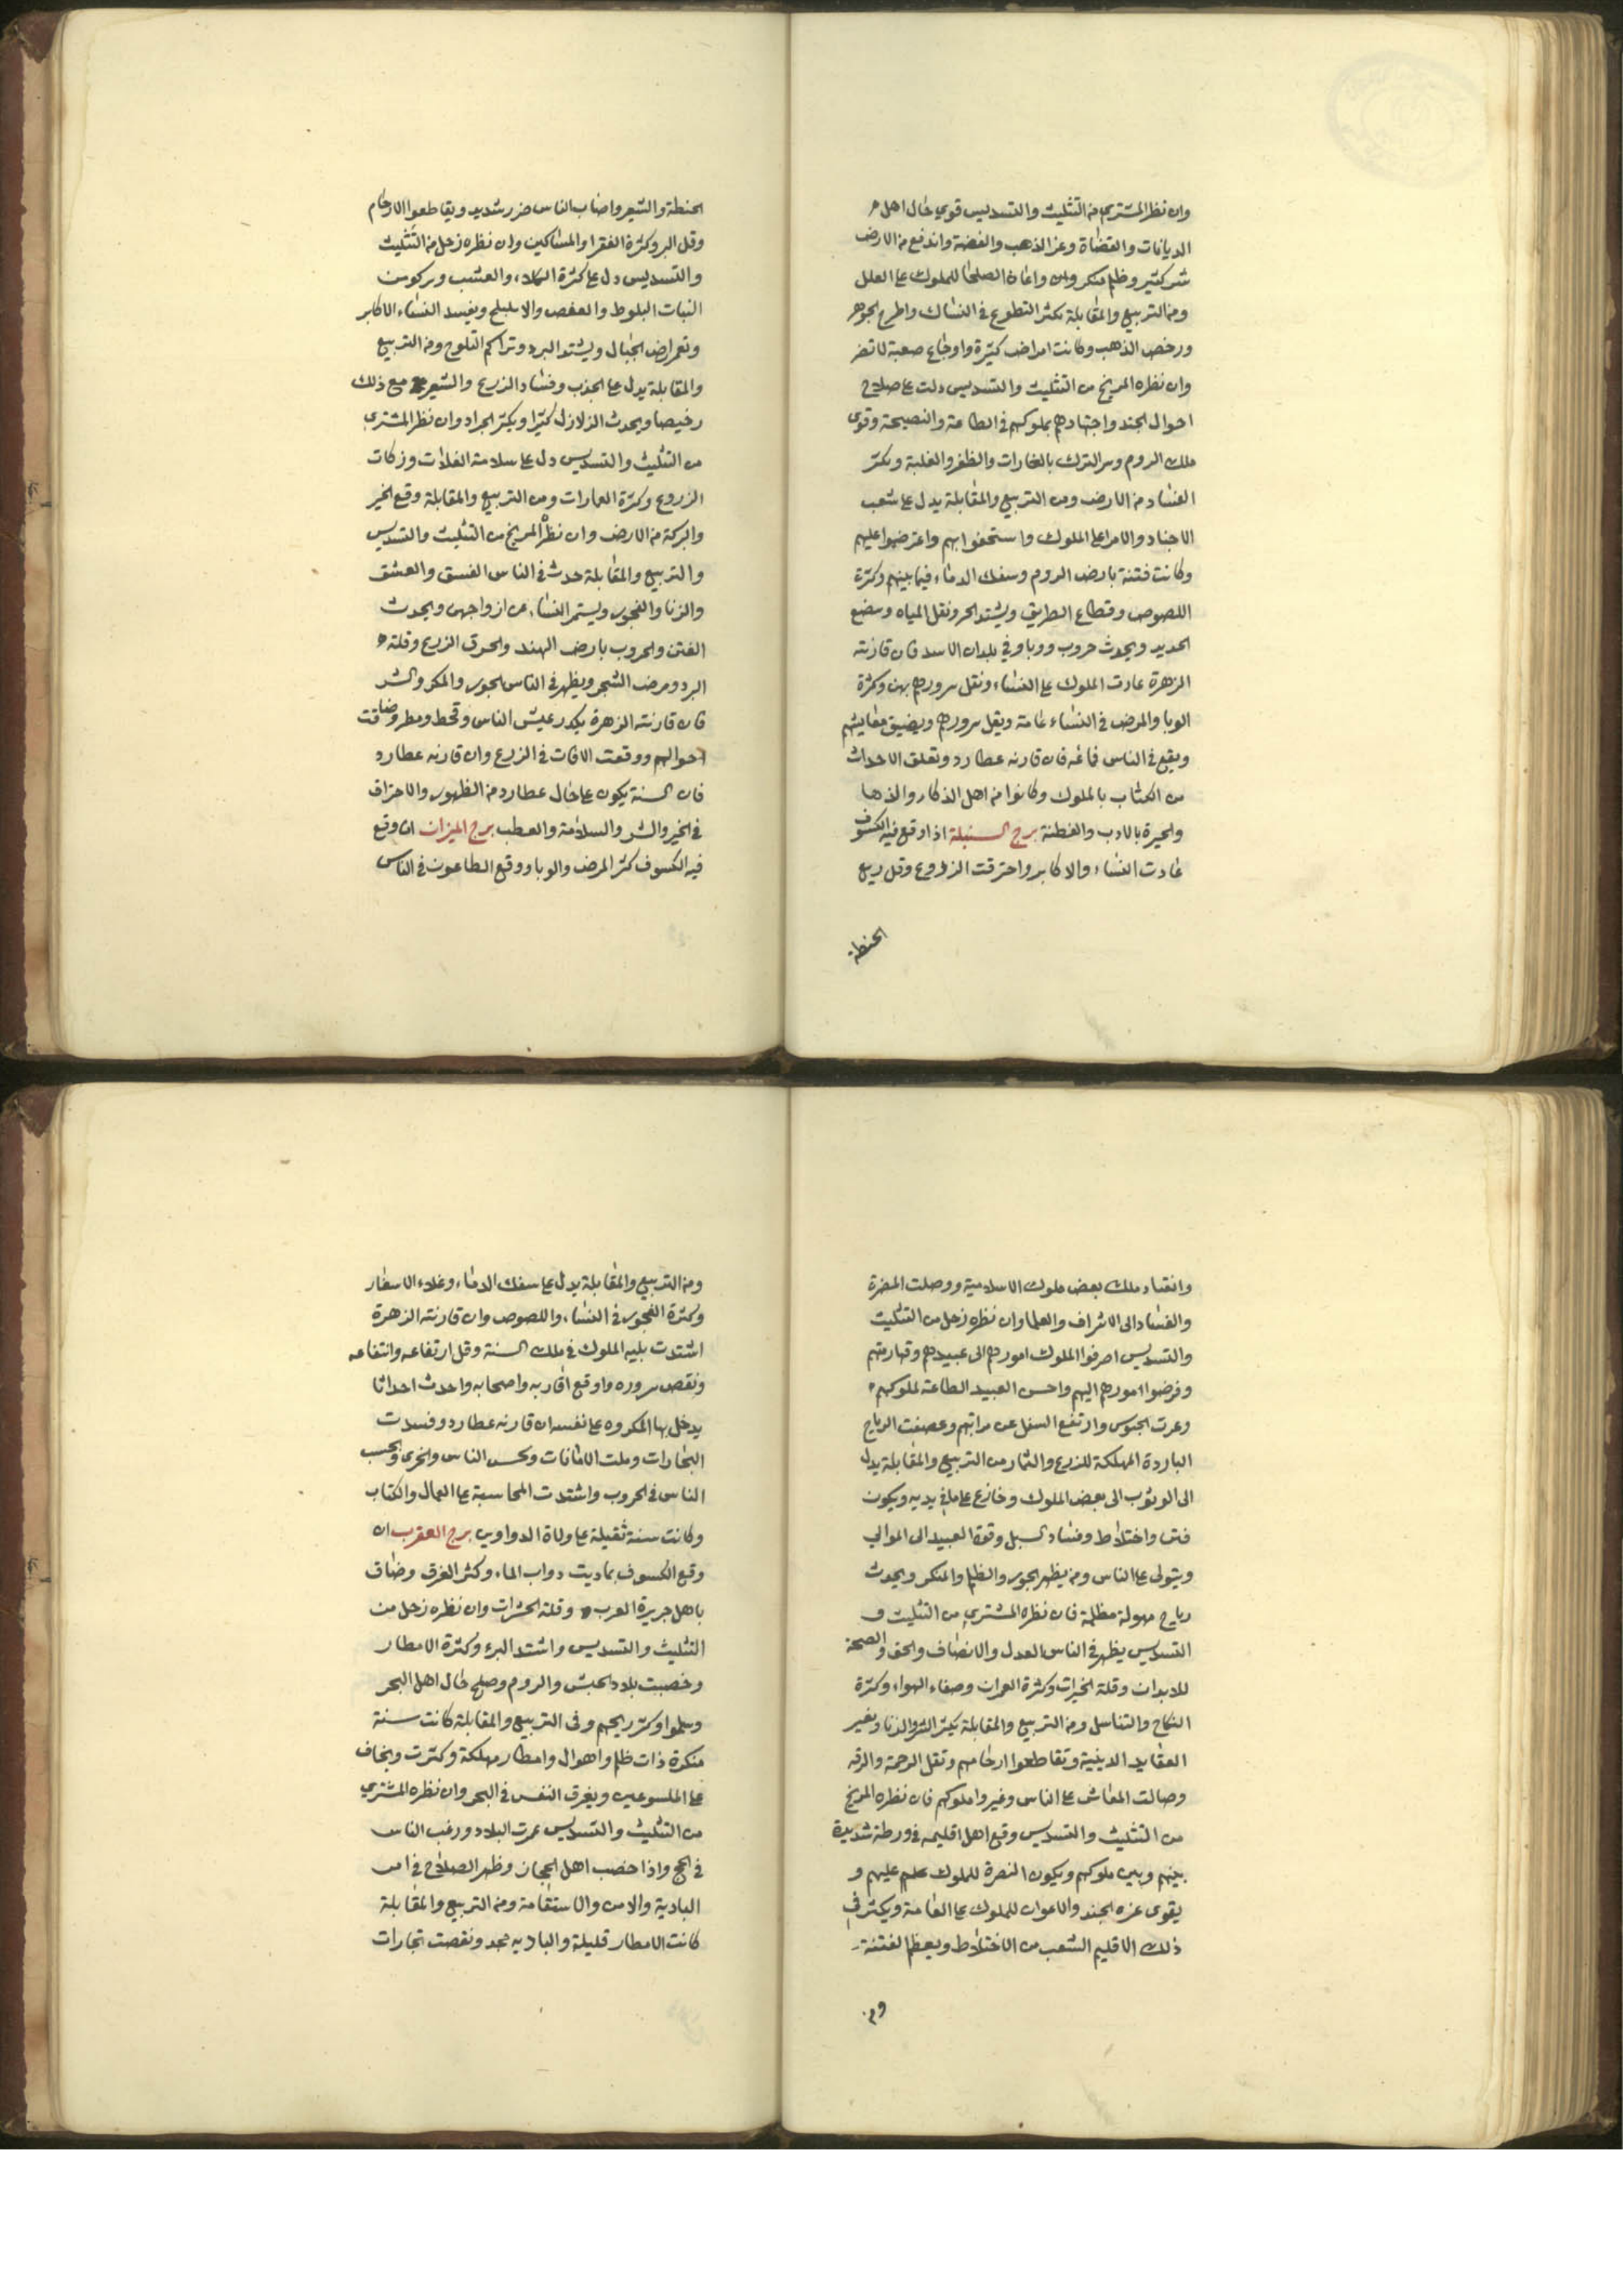 وان نظر المشتري من التثليث والتسديس قوي حال اهل
الديانات والقضاة وعز الذهب والفضة واندفع من الارض
شر كثير وظلم منكر واعان الصلحا للملوك على العلل
ومن التربيع والمقابلة يكثر التطوع في النساك واطرح الجوهر
ورخص الذهب وكانت امراض كثيرة واوجاع صعبة لا تضر
وان نظره المريخ من التثليث والتسديس دلت على صلاح
احوال الجند واجتهادهم بملوكهم في الطاعة والنصيحة وقوى
ملك الروم وسر الترك بالغارات والظفر والغلبة ويكثر
الفساد من الارض ومن التربيع والمقابلة يدل على شعب
الاجناد والامرا على الملوك واستخفوا بهم واعترضوا عليهم
وكانت فتنة بارض الروم وسفك الدماء فيما بينهم وكثرة
اللصوص وقطاع الطريق ويشتد الحر وتقل المياه
الحديد ويحدث حروب ووبا وفي بلدان الاسد فان قارنته
الزهرة عادت الملوك على النساء وتقل سرورهم بهن وكثرة
الوبا والمرض في النساء عامة ويقل سرورهم ويضيق معايشهم
ويقع في الناس فان قارنه عطارد وتعلق الاحداث
من الكتاب بالملوك وكانوا من اهل الذكاء والدها
والحيرة بالادب والفطنة برج السنبلة اذا وقع فيه الكسوف
عادت النساء والاكابر واحترقت الزروع وقل ريع
الحنطة
الحنطة والشعير واصاب الناس ضرر شديد ويقاطعوا الارحام
وقل البر وكثرة الفقرا والمساكين وان نظره زحل من التثليث
والتسديس دل على كثرة الكلاء والعشب ويركو من
النبات البلوط والعفص والابليلج ويفسد النساء الاكابر
ونعم ارض الجبال ويشتد البرد وتراكم الثلوج ومن التربيع
والمقابلة يدل على الجذب وفساد الزرع والشعير مع ذلك
رخيصا ويحدث الزلازل كثيرا ويكثر الجراد وان نظر المشترى
من التثليث والتسديس دل على سلامة الغلات وزكات
الزروع وكثرة العمارات ومن التربيع والمقابلة وقع الخير
والبركة من الارض وان نظره المريخ من التثليث والتسديس
والتربيع والمقابلة حدث في الناس الفسق والعشق
والزنا والفجور ويستمر النساء من ازواجهن ويحدث
الفتن والحروب بارض الهند والحرق الزرع وقلته
البرد ومرض الشجر ويظهر في الناس الجور والمكر والشر
فان قارنته الزهرة يكدر عيش الناس وقحط ومطر وضاقت
احوالهم ووقعت الافات في الزرع وان قارنه عطارد
فان السنة يكون على حال عطارد من الظهور والاحتراق
في الخير والشر والسلامة والعطب برج الميزان ان وقع
فيه الكسوف كثر المرض والوبا ووقع الطاعون في الناس
وانقساد ملك بعض ملوك الاسلامية ووصلت المضرة
والفساد الى الاشراف والعلما وان نظره زحل من التثليث
والتسديس اصرفوا الملوك امورهم الى عبيدهم وقهارمتهم
وفرضوا امورهم اليهم واحسن العبيد الطاعة لملوكهم
وعرت الجنوس وارتفع السفل عن مراتبهم وعصفت الرياح
الباردة المهلكة للزرع والثمار من التربيع والمقابلة يدل
الى الوثوب الى بعض الملوك وخازع على ما في يديه ويكون
فتن واختلاط وفساد السبل وقوة العبيد الى الموالي
ويتولى على الناس ومن يظهر الجور والظلم والمنكر ويحدث
رياح مهولة مظلمة فان نظره المشتري من التثليث و
التسديس يظهر في الناس العدل والانصاف والحق والصحة
للابدان وقلة الخيرات وكثرة العمران وصفاء الهواء وكثرة
النكاح والتناسل ومن التربيع والمقابلة يكثر الشر والزنا وتغير
العقايد الدينية وتقاطعوا ارحامهم وتقل الرحمة والرقه
وصالت المعاش على الناس وغيروا ملوكهم فان نظره المريخ
من التثليث والتسديس وقع اهل اقليمه في ورطة شديدة
بينهم وبين ملوكهم ويكون النصرة للملوك عليهم و
يقوى عزه الجند والاعوان للملوك على العامة ويكثر في
ذلك الاقليم الشعب من الاختلاط ويعظم الفتنة
ومن
ومن التربيع والمقابلة يدل على سفك الدماء وغلاء الاسعار
وكثرة الفجور في النساء واللصوص وان قارنته الزهرة
اشتدت بليه الملوك في ملك السنة وقل ارتفاعه وانتفاعه
ونقص سروره واوقع اقاربه واصحابه واحدث احداثا
يدخل بها المكروه على نفسه ان قارنه عطارد وفسدت
التجارات وملت الامانات الناس والخرى
الناس في الحروب واشتدت المحاسبة على العمال والكتاب
وكانت سنة ثقيلة على ولاة الدواوين برج العقرب ان
وقع الكسوف بماديت دواب الماء وكثر الغرق وضاق
باهل جزيرة العرب وقلة الحشرات وان نظره زحل من
التثليث والتسديس واشتد البرء وكثرة الامطار
وخصبت بلاد الحبش والروم وصلح حال اهل البحر
وسلموا وكثر ريحهم وفى التربيع والمقابلة كانت سنة
منكرة ذات ظلم واهوال وامطار مهلكة وكثرت ويخاف
على الملسوعين ويغرق النفس في البحر وان نظره المشتري
من التثليث والتسديس عمرت البلاد ورغب الناس
في الحج واذا خصب اهل الحجاز وظهر الصلاح في امر
البادية والامن والاستقامة ومن التربيع والمقابلة
كانت الامطار قليلة والباديه تجد ونقصت تجارات